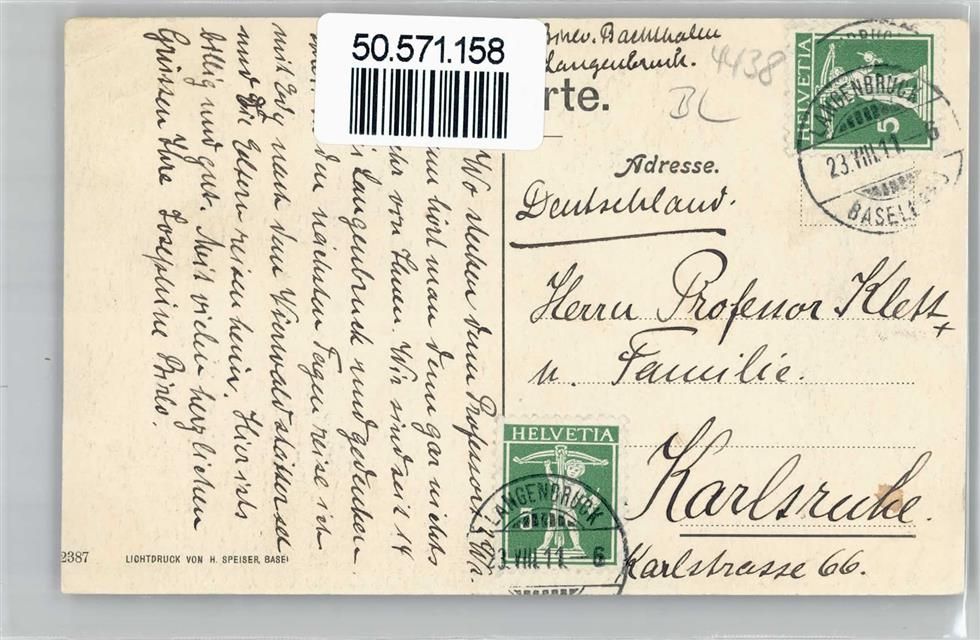 50.571.158
Langenbruck.
4438
BL
rte.
HELVETIA
5
LANGENBRUCK
23.VIII.11. 6
BASEL
Adresse.
Deutschland.
Herrn Professor Klett
u. Familie.
Karlsruhe.
Karlstrasse 66.
HELVETIA
5
LANGENBRUCK
23.VIII.11 6
Wo stecken denn Professors? Wa-
rum hört man denn gar nichts
mehr von Ihnen. Wir sind seit 14
Langenbruck und gedenken
den nächsten Tagen reise ich
mit Edy nach dem Vierwaldstättersee
und die Eltern reisen heim. Hier ists
billig und gut. Mit vielen herzlichen
Grüssen Ihre Josephine
2387 LICHTDRUCK VON H. SPEISER, BASEL